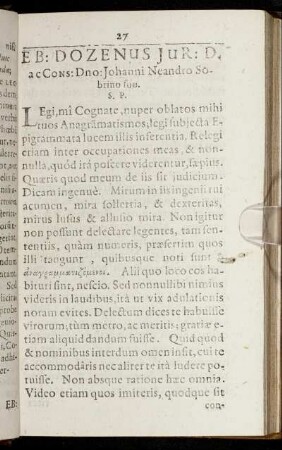 27
EB: DOZENUS JUR: D.
ac CONS: Dno: Johanni Neandro So-
brino suo.
S. P.
LEgi, mi Cognate, nuper oblatos mihi
tuos Anagrãmatismos, legi subjecta E-
pigrammata lucem illis inferentia. Relegi
etiam inter occupationes meas, & non-
nulla, quód ità poscere viderentur, sæpius.
Quæris quod meum de iis sit judicium.
Dicam ingenuè. Mirum in iis ingenii tui
acumen, mira sollertia, & dexteritas,
mirus lusus & allusio mira. Non igitur
non possunt delectare legentes, tam sen-
tentiis, quàm numeris, præsertim quos
illi tangunt, quibusque noti sunt
ἀναγραμματιζόμενοι. Alii quo loco eos ha-
bituri sint, nescio. Sed nonnullibi nimius
videris in laudibus, ità ut vix adulationis
notam evites. Delectum dices te habuisse
virorum, tùm metro, ac meritis: gratiæ e-
tiam aliquid dandum fuisse. Quid quod
& nominibus interdum omen insit, cui te
accommodâris nec aliter te ità ludere po-
tuisse. Non absque ratione hæc omnia.
Video etiam quos imiteris, quodque sit
con-
EB: